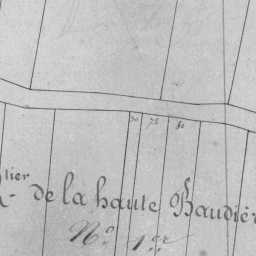 70 75 80
lier
de la haute Baudiè
N.o 1.er